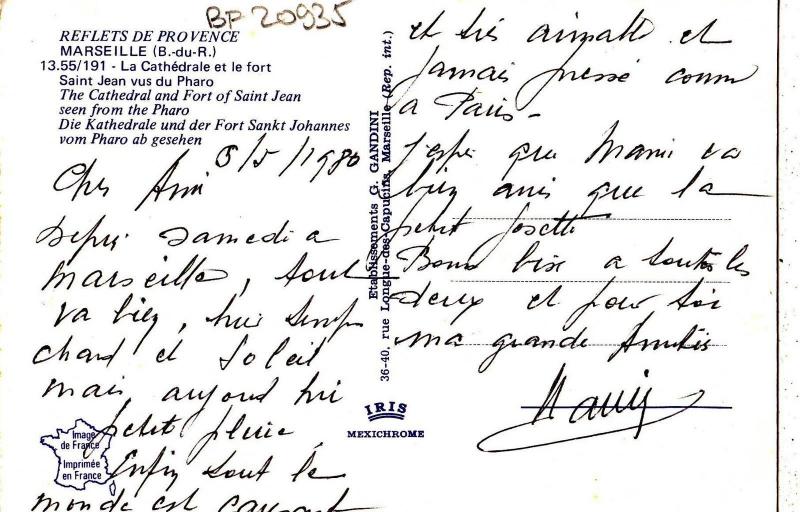 BP 20935
REFLETS DE PROVENCE
MARSEILLE (B.-du-R.)
13.55/191 - La Cathédrale et le fort
Saint Jean vus du Pharo
The Cathedral and Fort of Saint Jean
seen from the Pharo
Die Kathedrale und der Fort Sankt Johannes
vom Pharo ab gesehen
5/5/1980
Cher Ami
Depui Samedi a
Marseille, tout
va bien, hier temps
chaud et Soleil
mais aujourd hui
petit pluie
Enfin tout le
monde est
Image
de France
Imprimée
en France
Etablissements G. GANDINI
36-40, rue Longue-des-Capucins, Marseille (Rep. int.)
IRIS
MEXICHROME
et très aimable et
jamais pressé comm
a Paris -
j'espère que Mami va
bien ainsi que la
petit Josette
Bons bise a toutes les
deux et pour toi
ma grande Amitiés